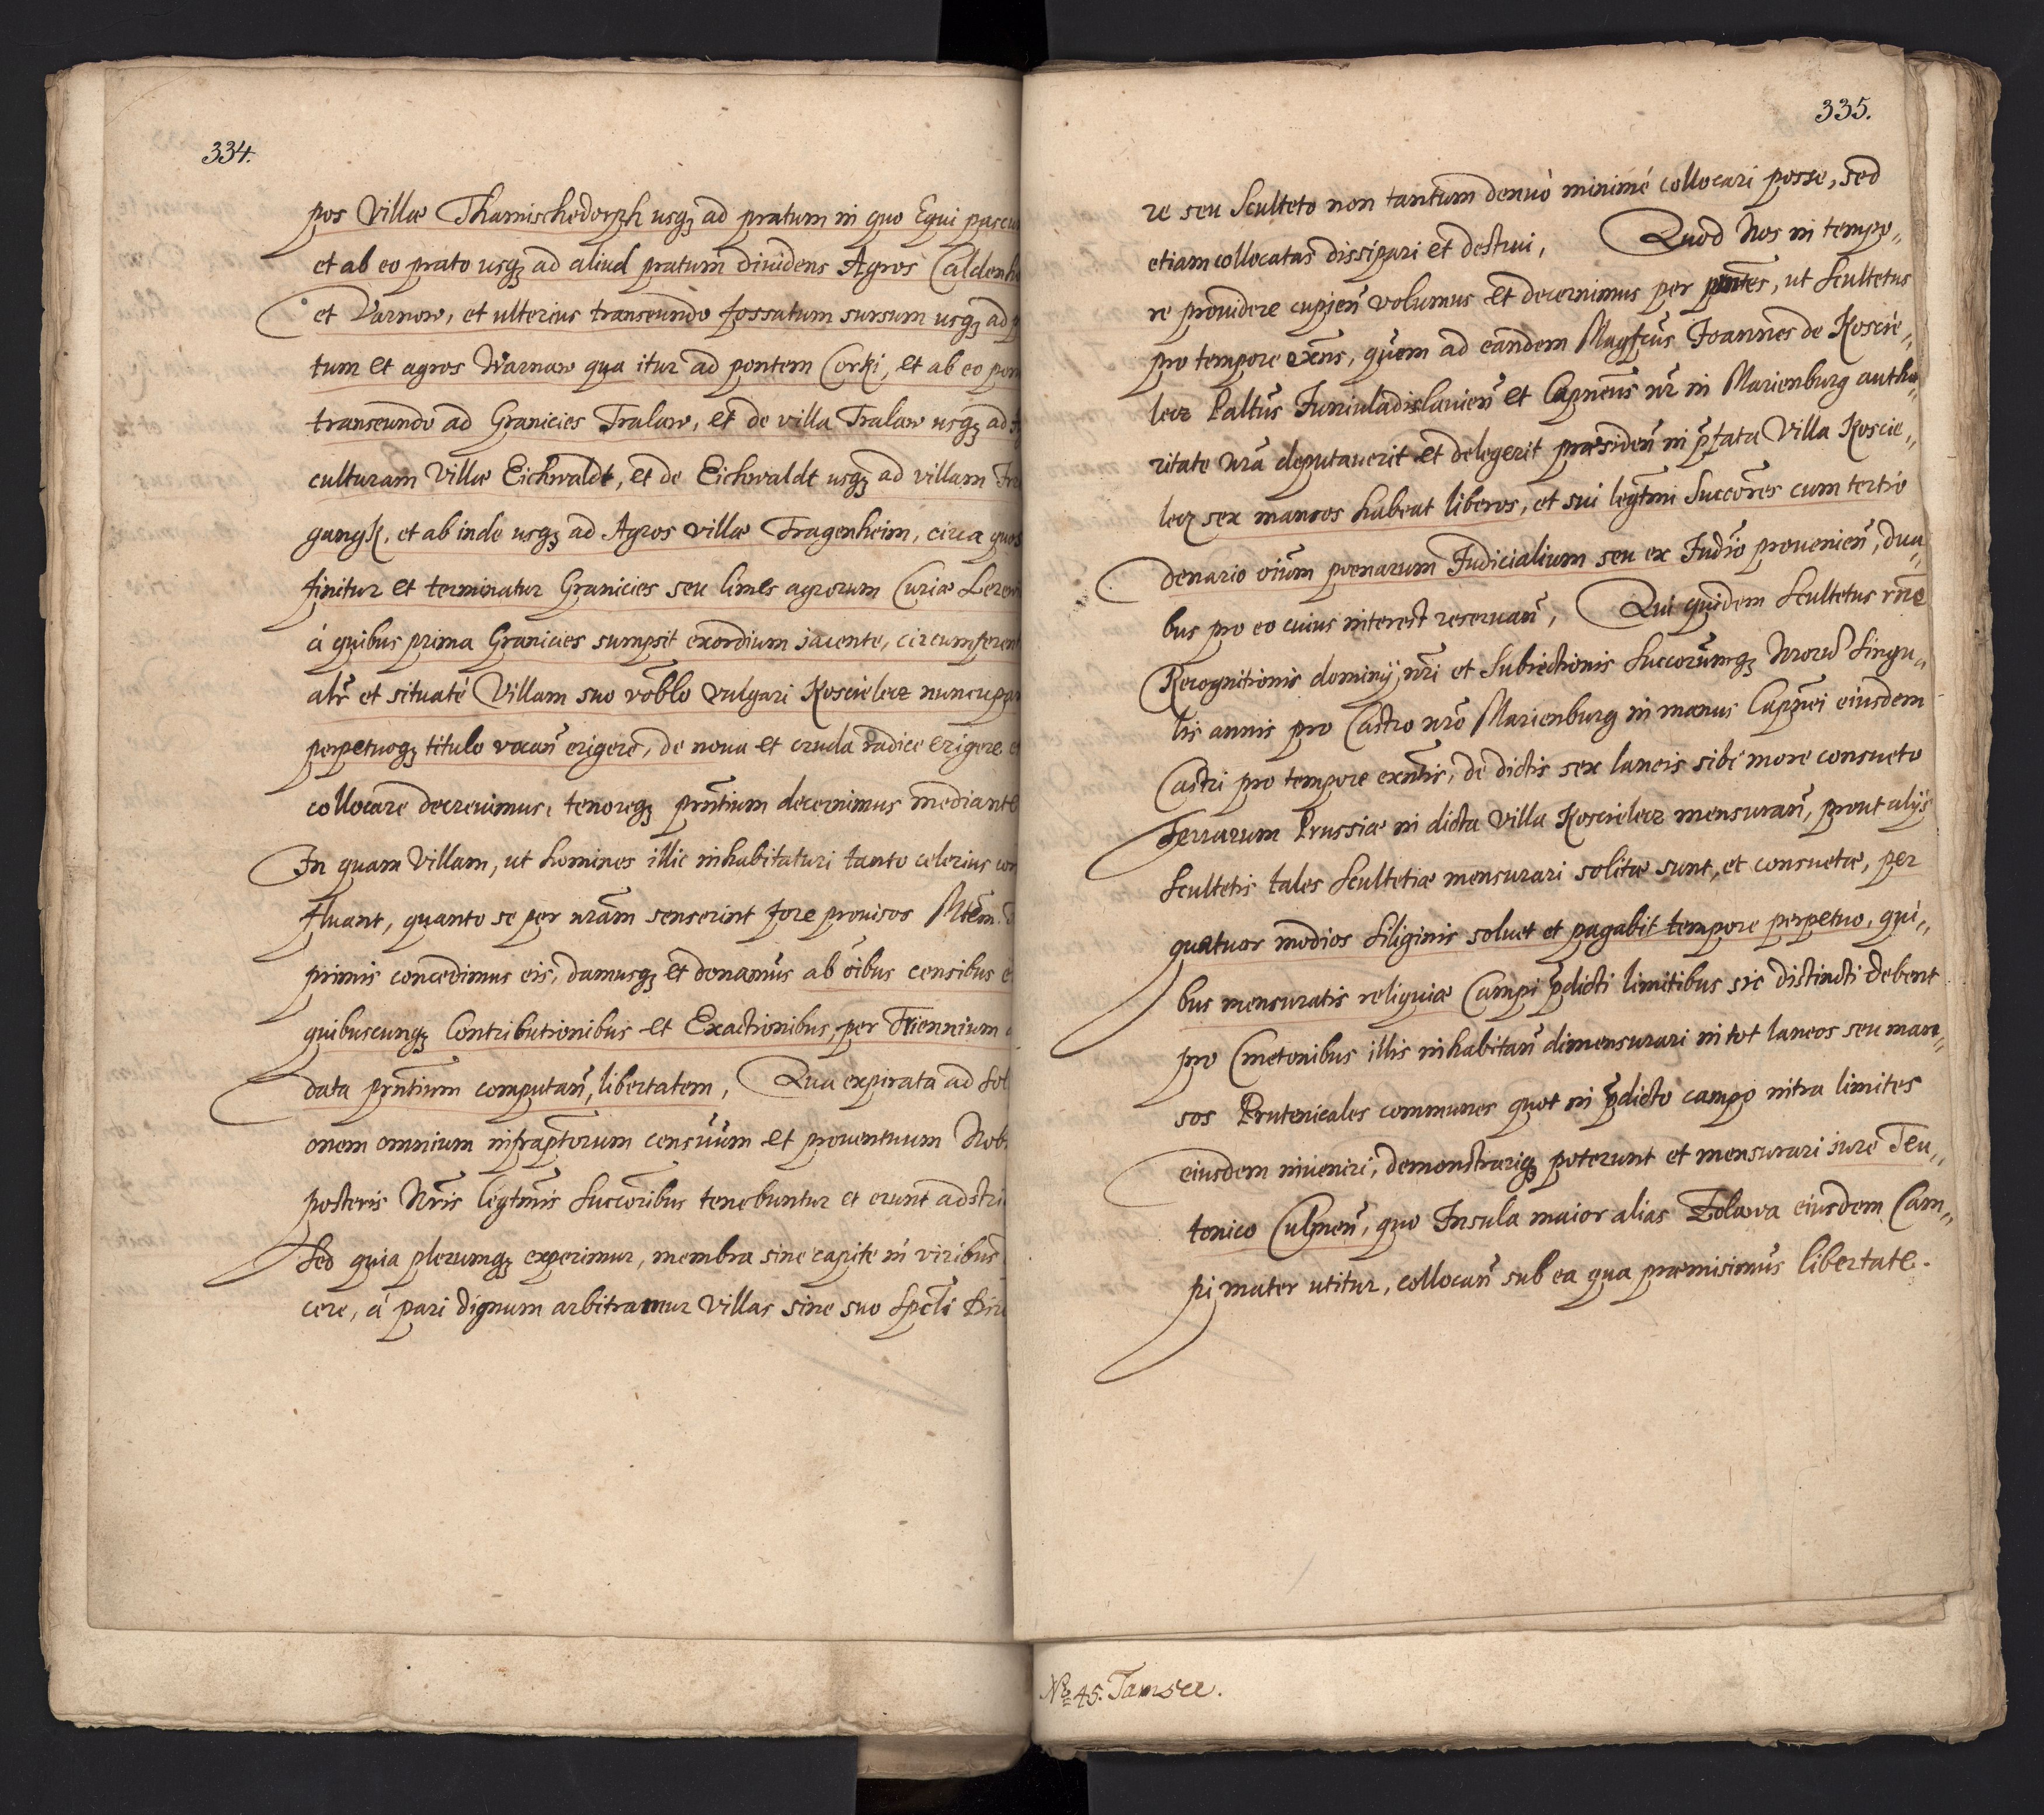 334.
pos Villæ Thamischedorph usq3 ad pratum in quo Equi
et ab eo prato usq3 ad aliud pratum diuidens Agros
et Varnow, et ulterius transeundo fossatum sursum usq3 ad
tum et agros Warnaw qua itur ad pontem Corki, et ab eo
transeundo ad Granicies Tralaw, et de villa Tralaw usq3 ad
culturam Villæ Eichwaldt, et de Eichwaldt usq3 ad villam
gangk, et ab inde usq3 ad Agros villæ Tragenheim, circa
finitur et terminatur Granicies seu limes agrorum Curiæ
á quibus prima Granicies sumpsit exordium iacente,
alr̃ et situatè Villam suo vo᷃blo vulgari Koscielecz
perpetuoq3 titulo vocañ erigere, de noua et cruda radice erigere
collocare decreuimus, tenoreq3 pñtium decernimus mediante
In quam Villam, ut homines illic inhabitaturi tanto celerius
fluant, quanto se per nrãm senserint fore prouisos Mtẽm
primis concedimus eis, damusq3 et donamus ab oĩbus censibus
quibuscunq3 Contributionibus et Exactionibus per Triennium
data pñtium computañ, libertatem, Qua expirata ad
onem omnium infraptorum censuum et prouentuum
posteris Nrĩs legtm̃is Succorĩbus tenebuntur et erunt
Sed quia plerumq3 experimur, membra sine capite in viribus
cere, á pari dignum arbitramur Villas sine suo spcĩli
335.
re seu Sculteto non tantum denuò minimè collocari posse, sed
etiam collocatas dissipari et destrui, Quod Nos in tempo„
re prouidere cupieñ volumus et decernimus per pñtes, ut Scultetus
pro tempore exñs, quem ad eandem Magfcũs Joannes de Koscie„
lecz Paltũs Juniuladislauieñ et Capneũs nr̃ in Marienburg autho„
ritate nrã deputauerit et delegerit præsideñ in pfata Villa Koscie„
lecz sex mansos habeat liberos, et sui legtm̃i Succorẽs cum tertio
denario oiũm poenarum Judicialium seu ex Judĩo prouenieñ, dua„
bus pro eo cuius interest reseruañ, Qui quidem Scultetus rñe
Recognitionis dominij nrĩ et Subiectionis Succorũmq3 Nrorũ Singu„
lis annis pro Castro nrõ Marienburg in manus Capnei eiusdem
Castri pro tempore exñtis, de dictis sex laneis sibi more consueto
Terrarum Prussiæ in dicta Villa Koscielecz mensurañ, prout alijs
Scultetis tales Scultetiæ mensurari solitæ sunt, et consuetæ, per
quatuor modios Siliginis soluet et pagabit tempore perpetuo, qui„
bus mensuratis reliquiæ Campi pdicti limitibus sic distincti debent
pro Cmetonibus illis inhabitañ dimensurari in tot laneos seu man„
sos Prutenicales communes quot in pdicto campo intra limites
eiusdem inueniri, demonstrariq3 poterunt et mensurari iure Teu„
tonico Culmeñ, quo Insula maior alias Zolawa eiusdem Cam„
pi mater utitur, collocañ sub ea qua præmisimus libertate.
No 45. Tamsee.